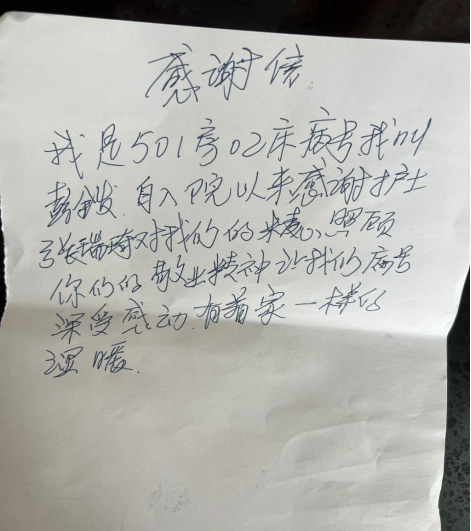 感谢信
我是501房02床病号,我叫
彭金发.自入院以来感谢护士
张瑞琦对我们的 照顾
你们的敬业精神让我们病号
深受感动.有着家一样的
温暖.